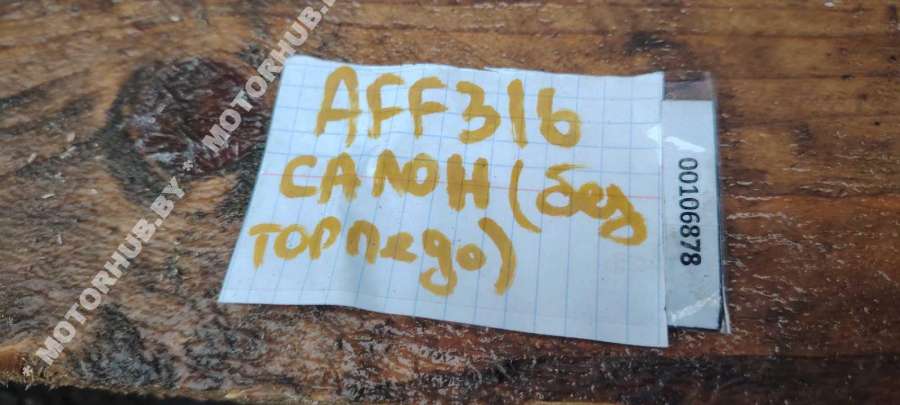 AFF316
САЛОН (без
торпедо)
00106878
* MOTORHUB.BY * MOTORHUB.BY